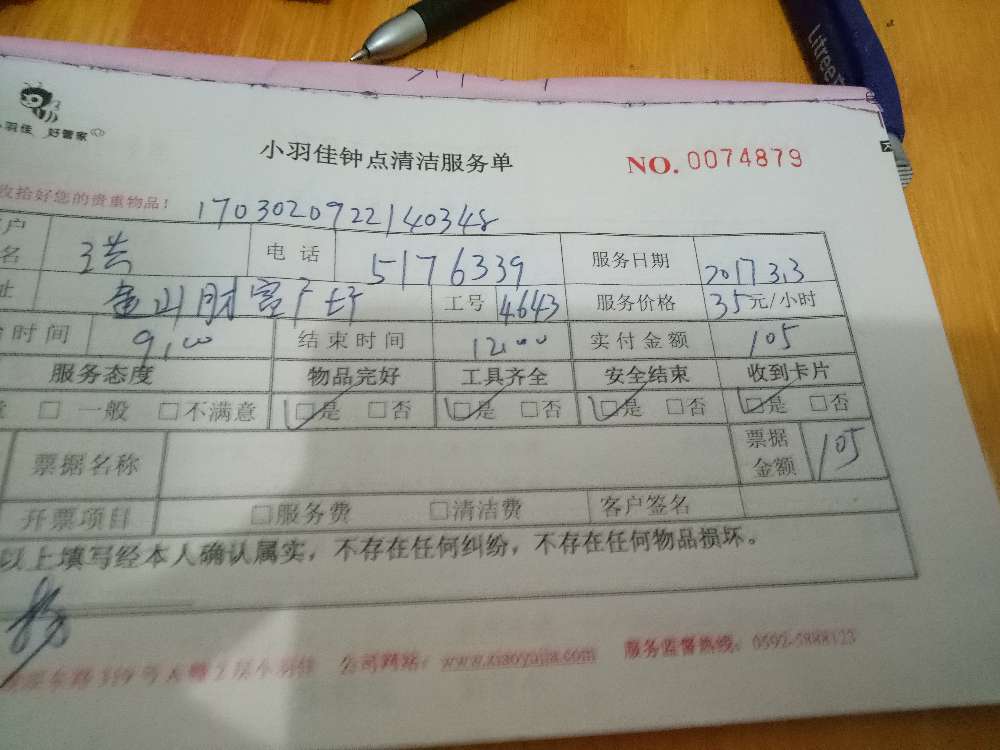 Litree
小羽佳 好管家
小羽佳钟点清洁服务单 NO. 0074879
收拾好您的贵重物品! 1703020922140348
户名 电话 5176339 服务日期 2017 3.3
址 金山财富广场 工号 4643 服务价格 35元/小时
时间 9:00 结束时间 12:00 实付金额 105
服务态度 物品完好 工具齐全 安全结束 收到卡片
意 □ 一般 □不满意 □是 □否 □是 □否 □是 □否 □是 □否
票据名称 票据金额 105
开票项目 □服务费 □清洁费 客户签名
以上填写经本人确认属实，不存在任何纠纷，不存在任何物品损坏。
大楼2层小羽佳 公司网站：www.xiaoyujia.com 服务监督热线：0592-5888123